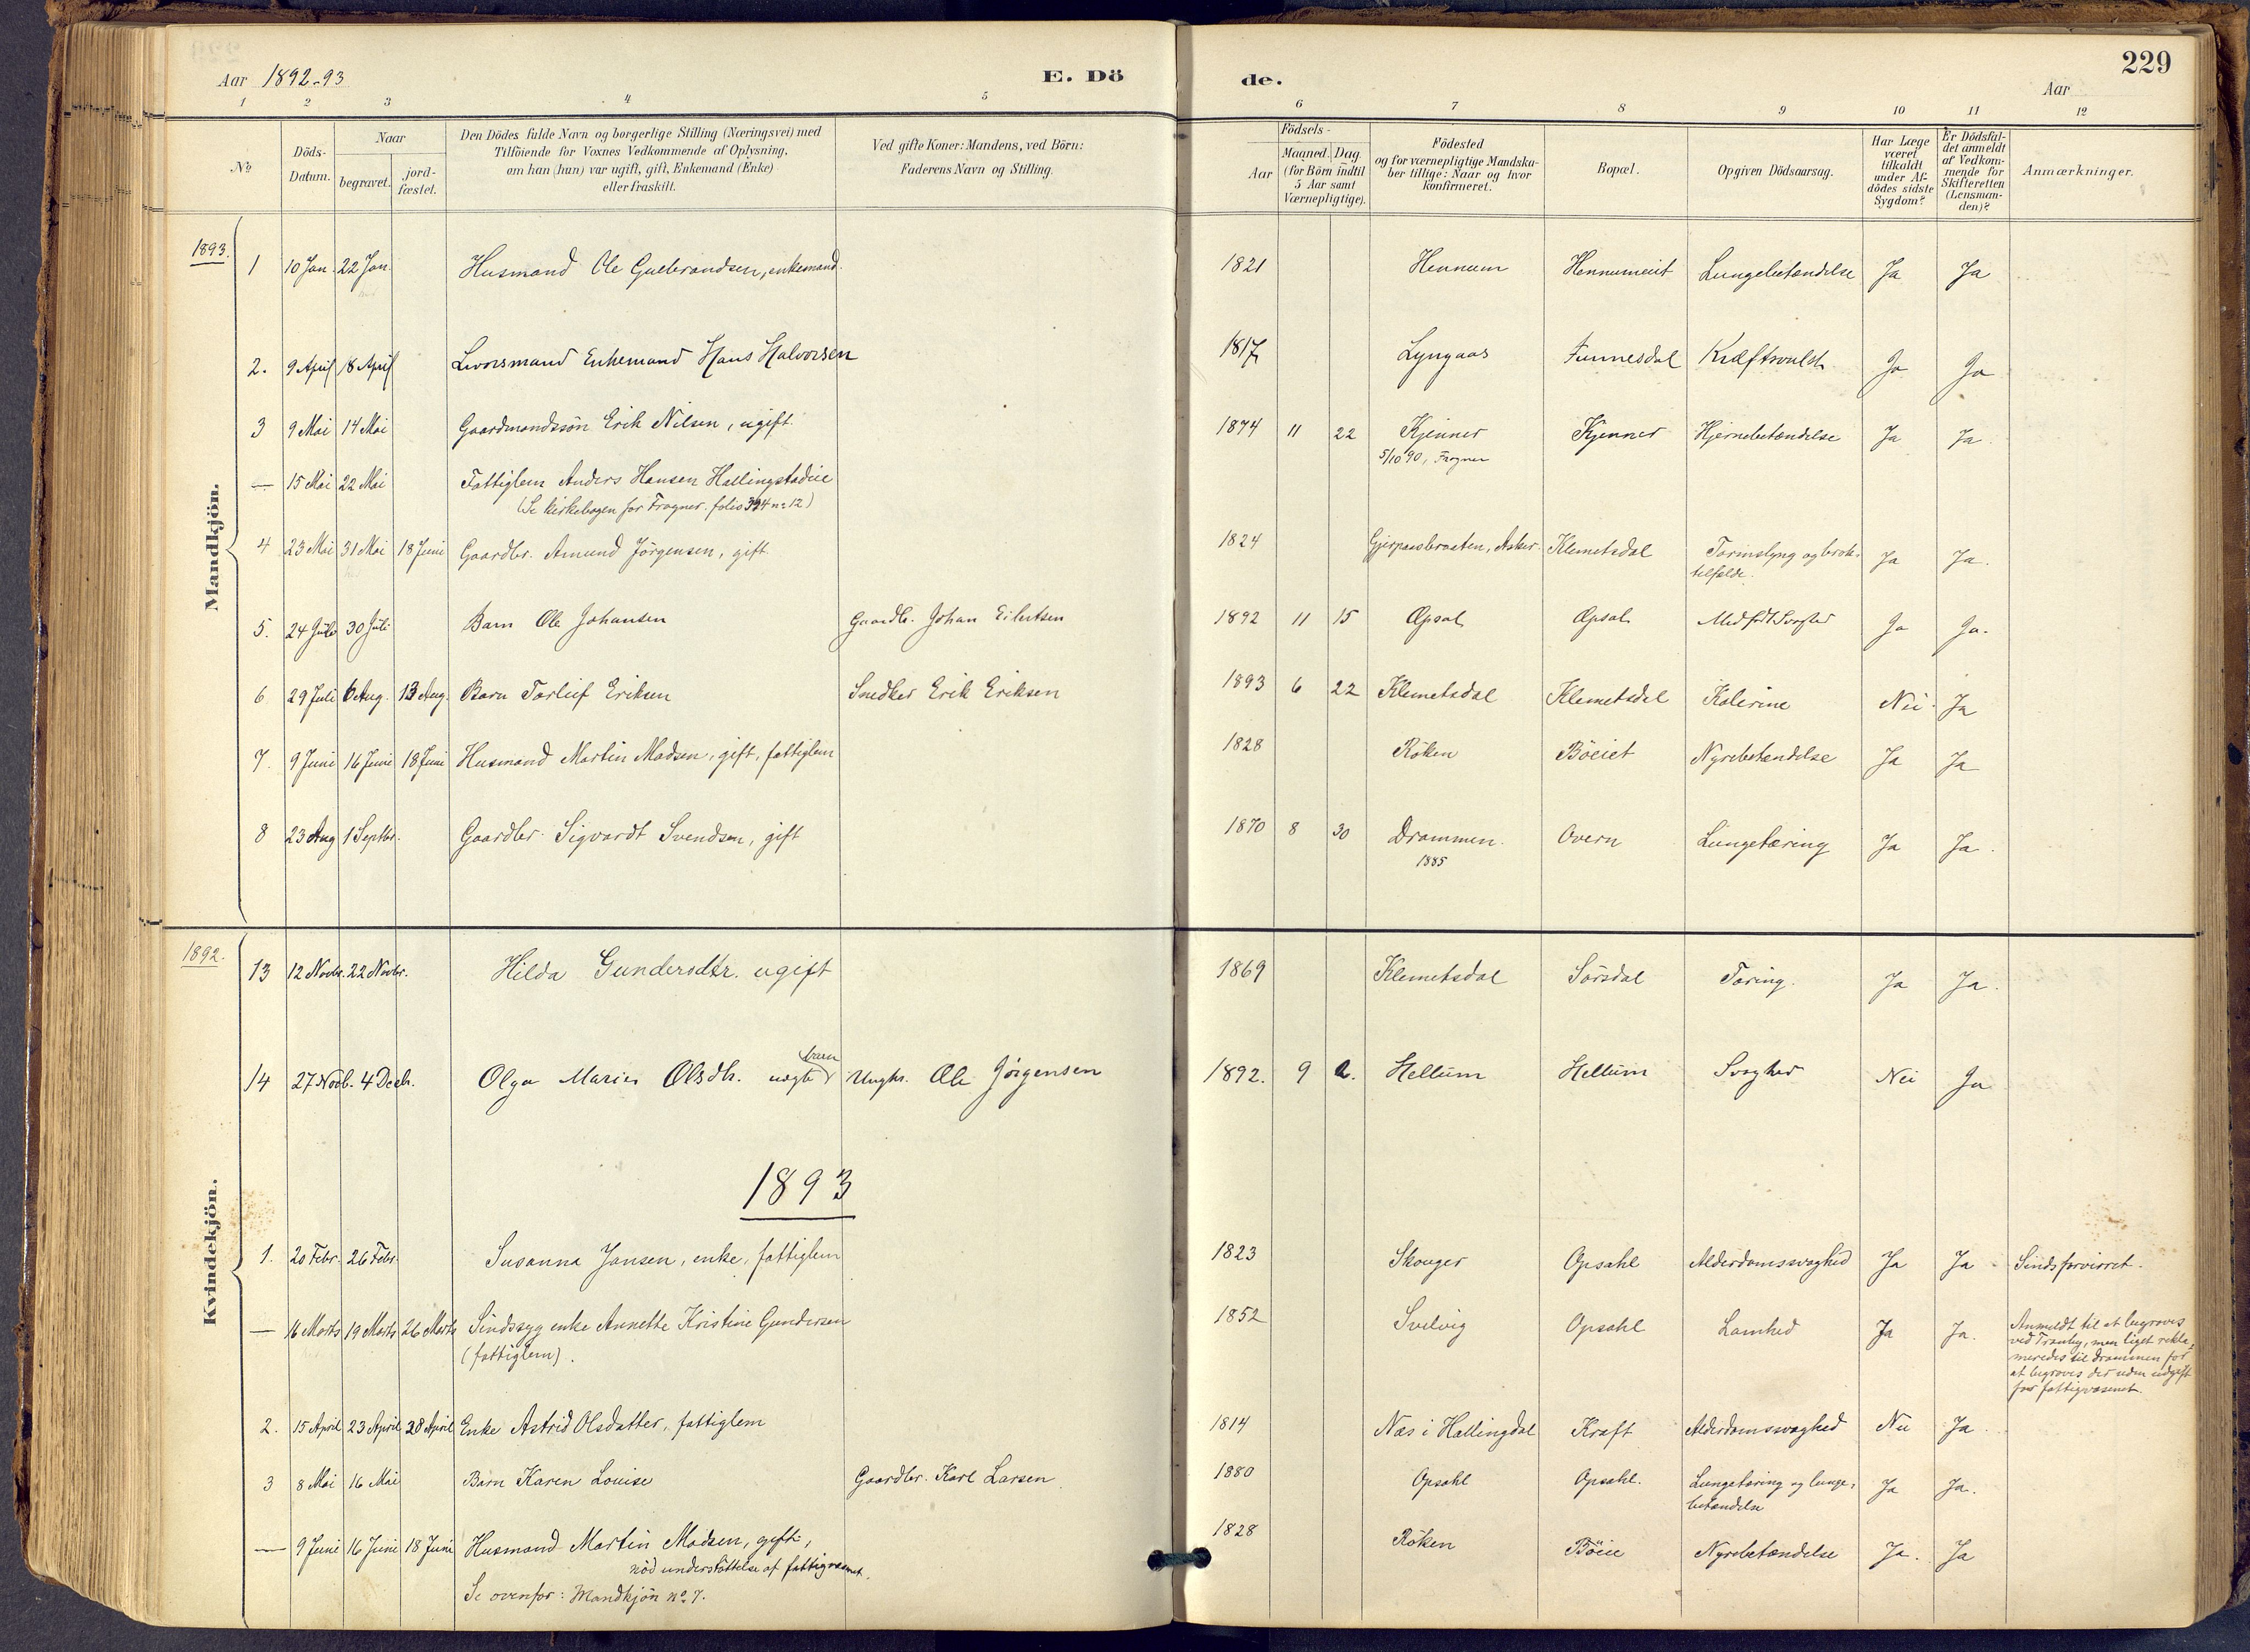 Aar 1892-93
E. Dö
de.
229
Aar
1 2 3 4 5 6 7 8 9 10 11 12
No
Döds-
Datum.
Naar
begravet.
jord-
fæstet.
Den Dödes fulde Navn og borgerlige Stilling (Næringsvei) med
Tilföiende for Voxnes Vedkommende af Oplysning,
om han (hun) var ugift, gift, Enkemand (Enke)
eller fraskilt.
Ved gifte Koner: Mandens, ved Börn:
Faderens Navn og Stilling.
Födsels-
Aar
Maaned. Dag.
(for Börn indtil
5 Aar samt
Værnepligtige).
Födested
og for værnepligtige Mandska-
ber tillige: Naar og hvor
konfirmeret.
Bopæl.
Opgiven Dödsaarsag.
Har Læge
været
tilkaldt
under Af-
dödes sidste
Sygdom?
Er Dödsfal-
det anmeldt
af Vedkom-
mende for
Skifteretten
(Lensman-
den)?
Anmærkninger.
Mandkjön.
1893.
1 10 Jan. 22 Jan. Husmand Ole Gulbrandsen, enkemand. 1821 Hennum Hennumeiet Lungebetændelse Ja Ja
2. 9 April 18 April Enkemand Hans Halvorsen 1817 Lyngaas Funnesdal Kræftsvulst Ja Ja
3 9 Mai 14 Mai Gaardmandssön Erik Nilsen, ugift. 1874 11 22 Kjenner Kjenner Hjernebetændelse Ja Ja.
5/10 90, Frogner
— 15 Mai 22 Mai Fattiglem Anders Hansen Hallingstadeie
(Se kirkebogen for Frogner. folio 394 no 12)
4 23 Mai 31 Mai 18 Juni Gaardbr. Amund Jörgensen, gift 1824 Asker. Klemetsdal Tarmslyng og brok-
tilfælde. Ja Ja.
5. 24 Juli 30 Juli Barn Ole Johansen Gaardb. Johan Eilertsen 1892 11 15 Opsal Opsal Medfødt Svaghed Ja Ja.
6 29 Juli 6 Aug. 13 Aug. Barn Torleif Eriksen Snedker Erik Eriksen 1893 6 22 Klemetsdal Klemetsdal Kolerine Nei. Ja
7. 9 Juni 16 Juni 18 Juni Husmand Martin Madsen, gift, fattiglem 1828 Röken Böeiet Nyrebetændelse Ja Ja
8 23 Aug 1 Septbr. Gaardbr. Sigvardt Svendsen, gift 1870 8 30 Drammen. Overn Lungetæring Ja Ja.
1885
Kvindekjön.
1892.
13 12 Novbr. 22 Novbr. Hilda Gundersdtr. ugift 1869 Klemetsdal Sörsdal Tæring. Ja Ja.
14 27 Novb. 4 Decb. Olga Marie Olsdtr. uægte barn Ungkr. Ole Jörgensen 1892. 9 2. Hellum Hellum Svaghed Nei Ja
1893
1. 20 Febr. 26 Febr. Susanna Jansen, enke, fattiglem 1823 Skouger Opsahl Alderdomssvaghed Ja Ja Sindsforvirret.
— 16 Marts 19 Marts 26 Marts Sindssyg enke Annette Kristine Gundersen
(fattiglem). 1852 Svelvig Opsahl Lamhed Ja Ja.
Anmeldt til at begraves
ved Tranby, men liget rekla-
meredes til Drammen for
at begraves der uden udgift
for fattigvæsenet.
2. 15 April 23 April 30 April Enke Astrid Olsdatter, fattiglem 1814 Næs i Hallingdal Kraft Alderdomssvaghed Nei Ja.
3 8 Mai 16 Mai Barn Karen Louise Gaardbr. Karl Larsen. 1880 Opsahl Opsahl. Lungetæring og lunge-
betændelse Ja Ja.
— 9 Juni 16 Juni 18 Juni Husmand Martin Madsen, gift, 1828 Röken Böeie Nyrebetændelse Ja. Ja
nöd understöttelse af fattigvæsenet.
Se ovenfor: Mandkjön no 7.